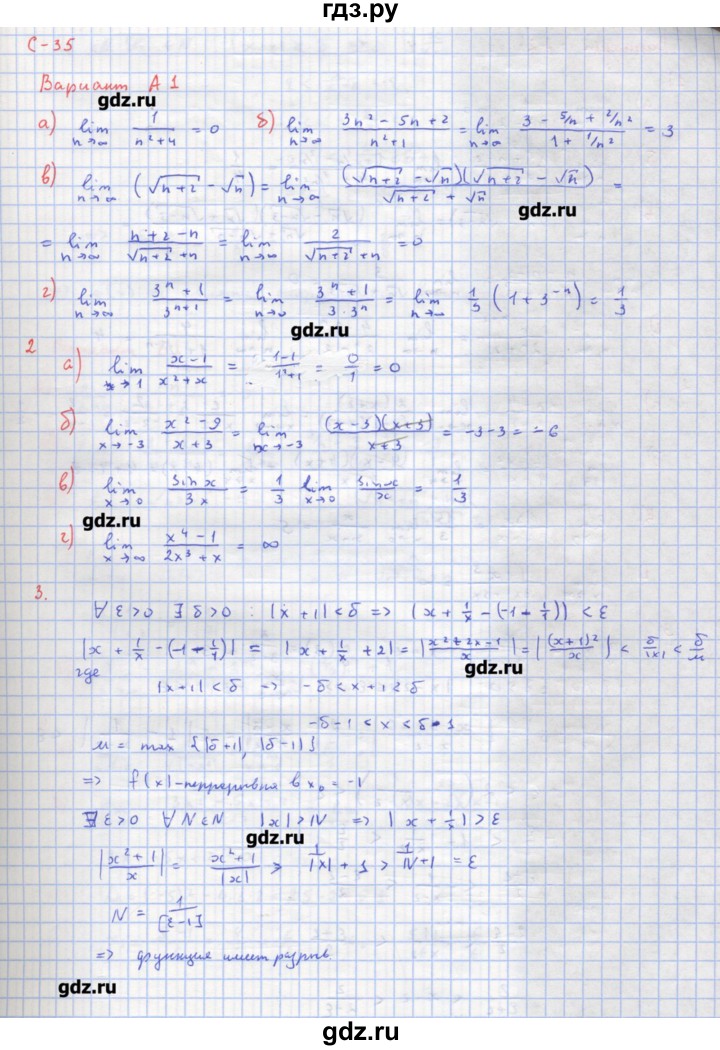 гдз.ру
С-35
Вариант А1
gdz.ru
а) lim n→∞ 1/(n²+4) = 0 б) lim n→∞ (3n² - 5n + 2)/(n²+1) = lim n→∞ (3 - 5/n + 2/n²)/(1 + 1/n²) = 3
в) lim n→∞ (√(n+2) - √n) = lim n→∞ (√(n+2) - √n)(√(n+2) - √n)/(√(n+2) + √n) =
gdz.ru
= lim n→∞ (n+2-n)/(√(n+2)+n) = lim n→∞ 2/(√(n+2)+n) = 0
г) lim n→∞ (3ⁿ+1)/3ⁿ⁺¹ = lim (3ⁿ+1)/(3·3ⁿ) = lim n→∞ 1/3 (1+3⁻ⁿ) = 1/3
gdz.ru
2
а) lim x→1 (x-1)/(x²+x) = (1-1)/(1²+1) = 0/1 = 0
б) lim x→-3 (x²-9)/(x+3) = lim x→-3 (x-3)(x+3)/(x+3) = -3-3 = -6
в) lim x→0 sin x/3x = 1/3 lim x→0 sin x/x = 1/3
gdz.ru
г) lim x→∞ (x⁴-1)/(2x³+x) = ∞
3.
∀ε>0 ∃δ>0 : |x+1|<δ => |x + 1/x - (-1 - 1/1)| < ε
|x + 1/x - (-1 - 1/1)| = |x + 1/x + 2| = |(x²+2x-1)/x| = |(x+1)²/x| < δ/|x| < δ/м
gdz.ru
где
|x+1|<δ => -δ<x+1<δ
-δ-1 < x < δ-1
м = max {|δ+1|, |δ-1|}
=> f(x)-непрерывна в x₀ = -1
∃ε>0 ∀N∈N |x|>N => |x + 1/x|>ε
gdz.ru
|(x²+1)/x| = (x²+1)/|x| > 1/|x| + 1 > 1/N + 1 = ε
N = 1/[ε-1]
=> функция имеет разрыв
gdz.ru
gdz.ru